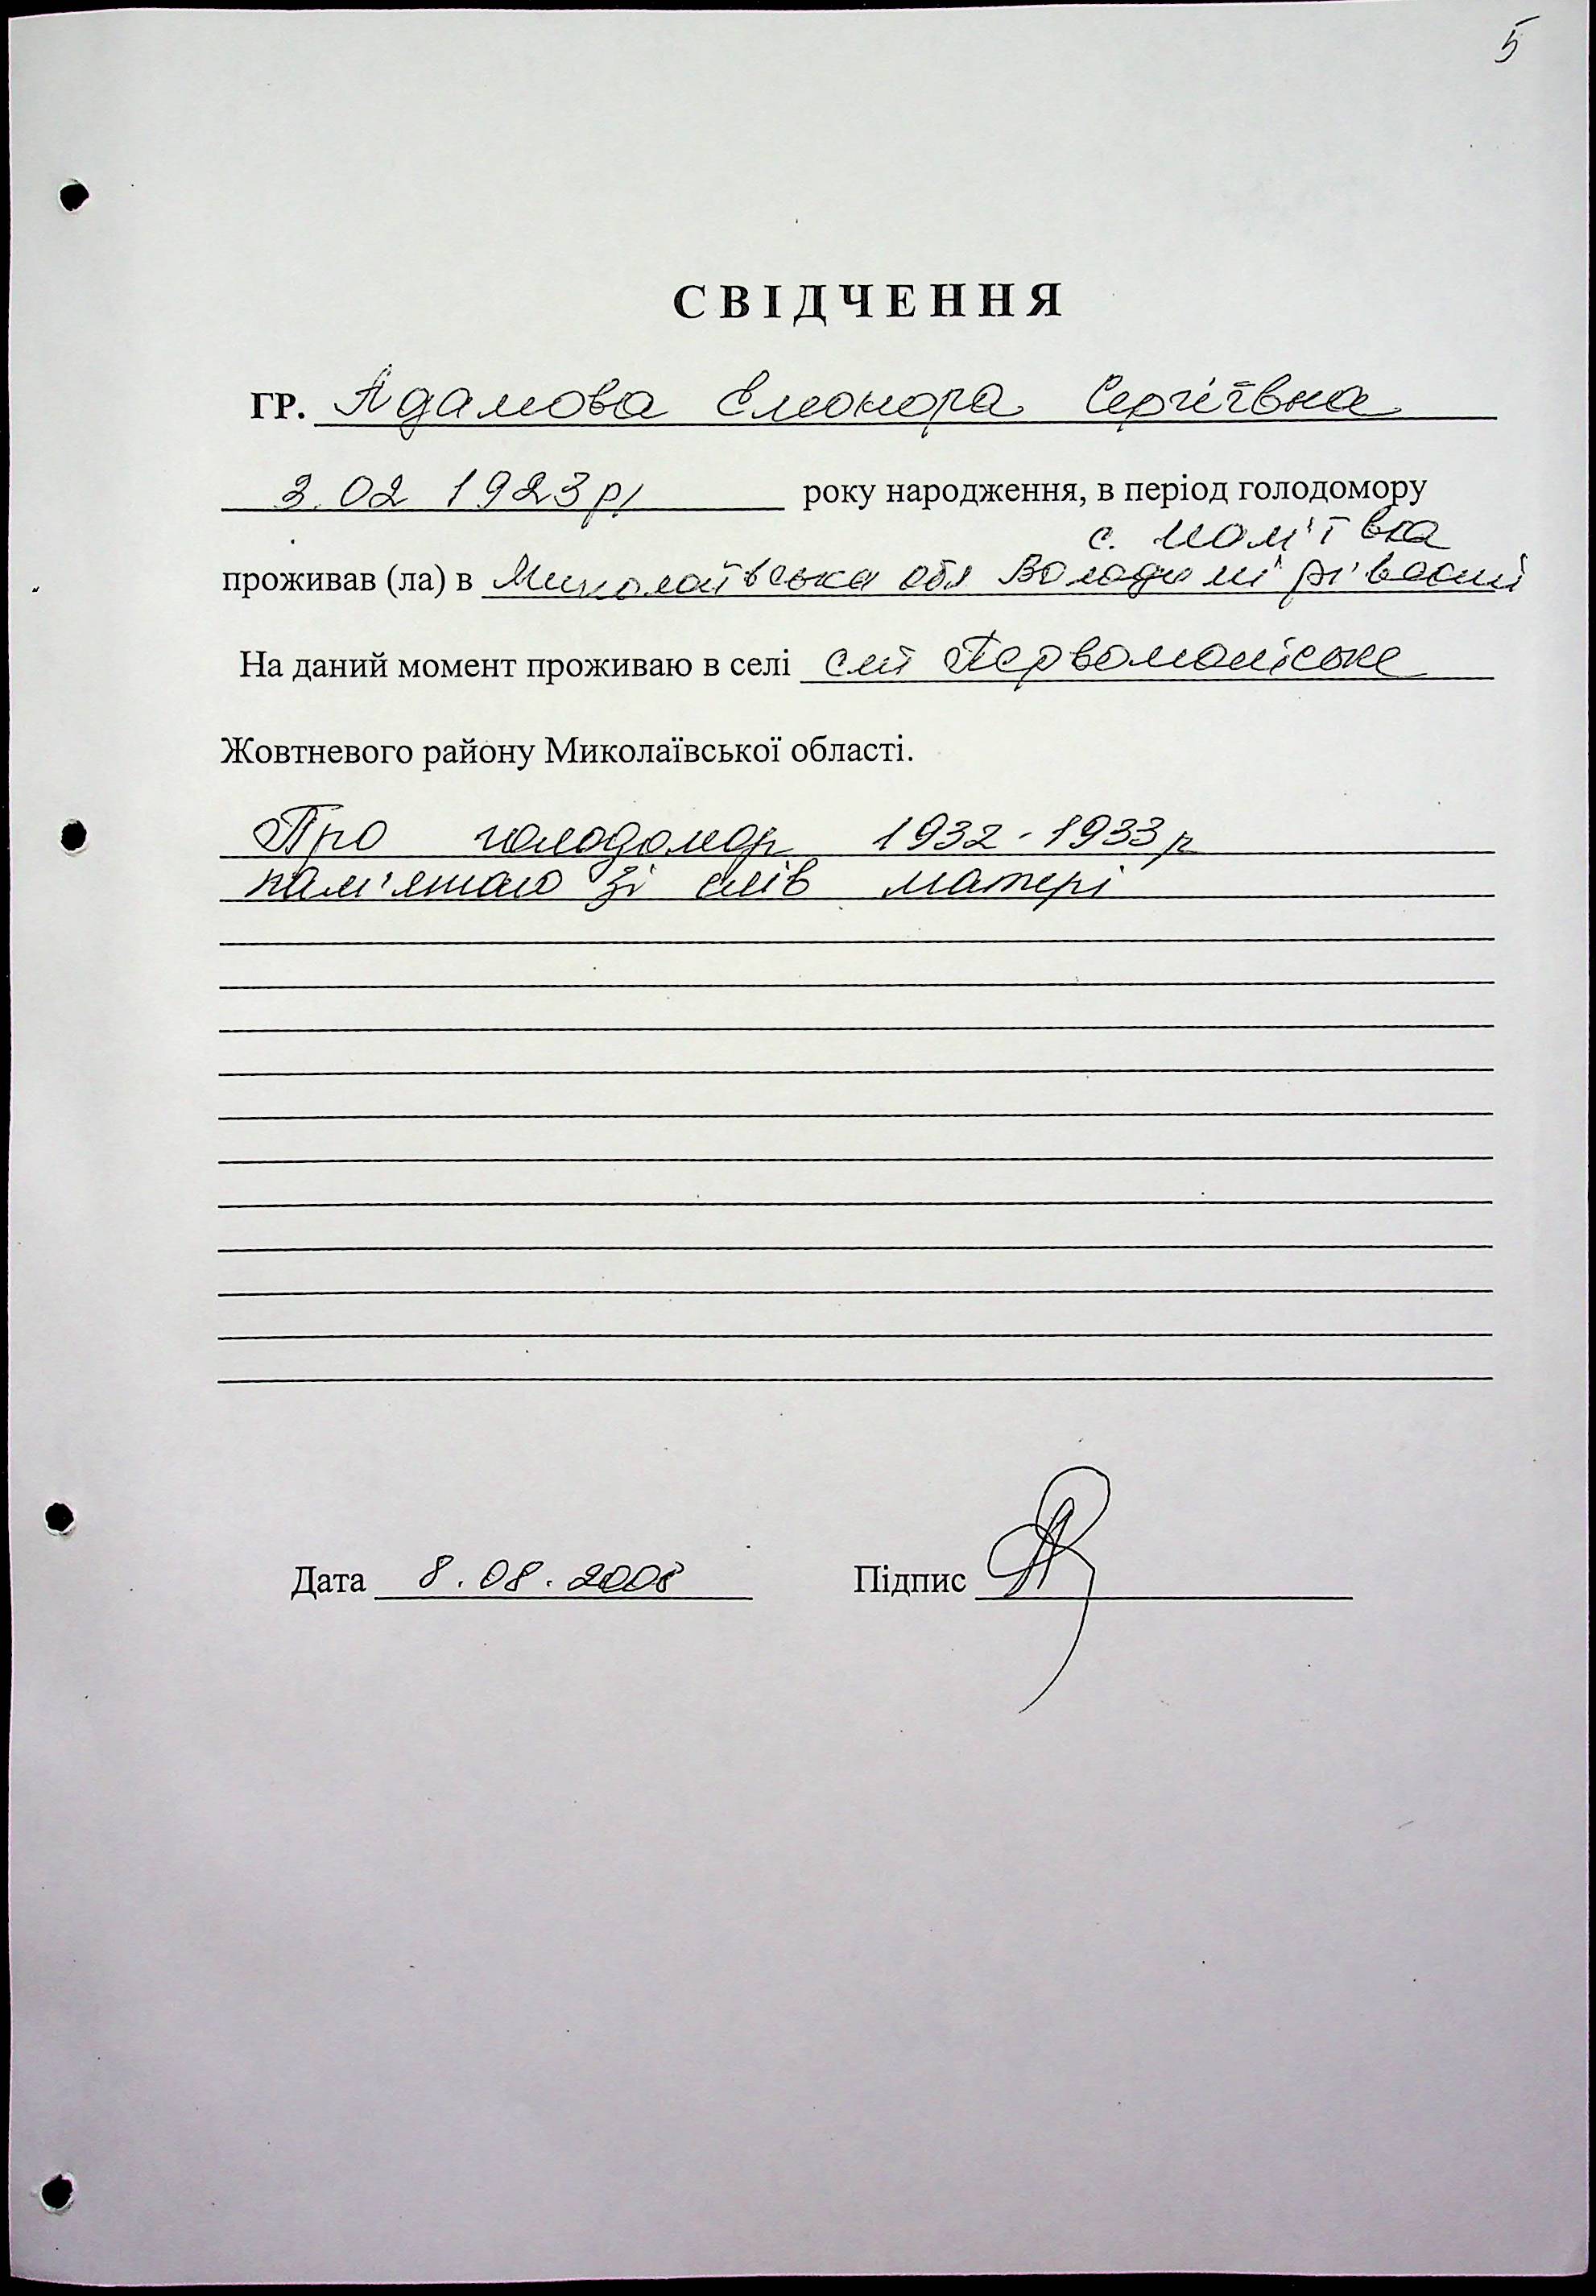 5
СВІДЧЕННЯ
ГР. Адамова Елеонора Сергіївна
3.02 1923р. року народження, в період голодомору
с.
проживав (ла) в Миколаївська обл
На даний момент проживаю в селі смт Первомайське
Жовтневого району Миколаївської області.
Про голодомор 1932-1933р
пам'ятаю зі слів матері
Дата 8.08.2008 Підпис